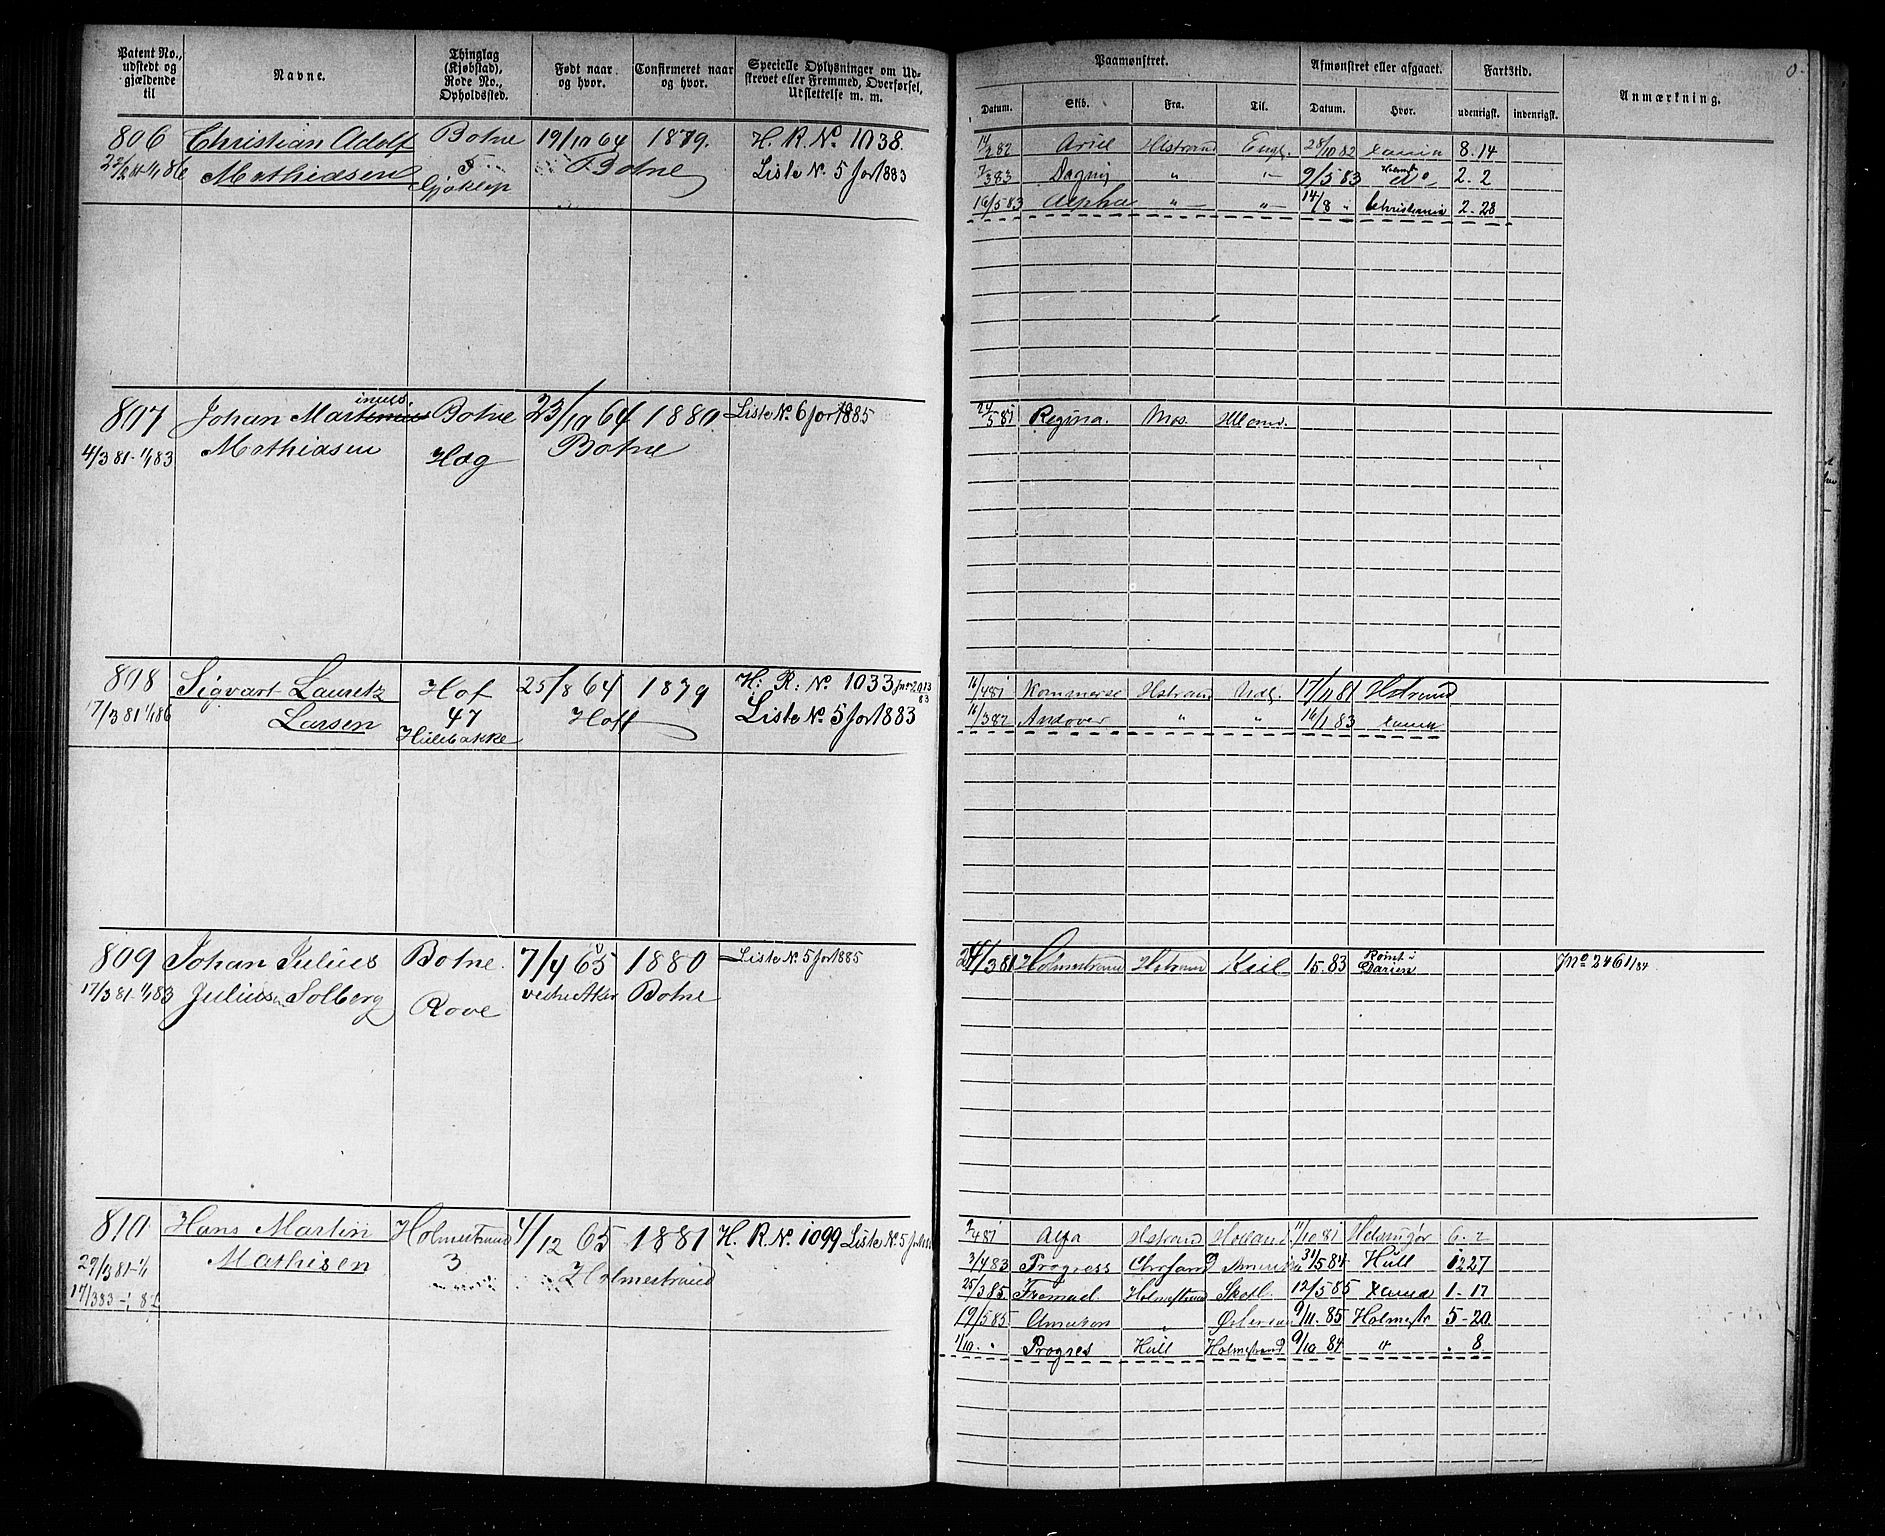 Patent No., udstedt og gjældende til
Navne.
Thinglag (Kjøbstad), Rode No., Opholdssted.
Født naar og hvor.
Confirmeret naar og hvor.
Specielle Oplysninger om Udskrevet eller Fremmed, Overførsel, Udslettelse m. m.
Paamønstret.
Afmønstret eller afgaaet.
Fartstid.
Anmærkning.
Datum. Skib. Fra. Til. Datum. Hvor. udenrigsk. indenrigsk.
806 Christian Adolf Botne 19/10 64 1879. H. R. No. 1038.
Mathiasen 5 Botne Liste No. 5 for 1883
Gjøklep
Ariel Hstrand Engl. 28/10 82 8.14
7/3 83 Dagny " " 9/5 83 Do 2.2
16/5 83 Alpha " " 14/8 " Christiania 2-28
807 Johan Martinus Botne 23/10 64 1880. Liste No. 6 for 1885
4/3 81-1/1 83 Mathiasen Hag Botne
24/5 81 Regina. Mos.
808 Sigvart Lauretz Hof 25/8 64 1879 H: R: No. 1033
17/3 81 1/1 86 Larsen 47 Hoff Liste No. 5 for 1883
Hillebakke
16/4 81 Kommerse Hstrand Udl. 17/11 81 Hstrand
16/3 82 Andover " " 16/1 83
809 Johan Julius Botne. 7/4 65 1880 Liste No. 5 for 1885
17/3 81 1/1 83 Julius. Solberg Rove vestre Aker Botne
/3 81 Holmestrand Hstrand Kiil 15.83 Rømt i Darien Jno 2461/84
810 Hans Martin Holmestrand 4/12 65 1881 H. R. No. 1099 Liste No. 5
29/3 81-1/1 Mathisen 3 Holmestrand
17/3 83-
2/4 81 Alfa Hstrand Holland 11/10 81 Helsingør 6.2
3/4 83 Progress Chrsand Amerika 31/5 84 Hull 1227
25/3 85 Fremad. Holmestrand Skotl. 12/5 85 1-17
19/5 85 Amazon " 9/11. 85 Holmestr 5-20
1/10 " Progres Hull Holmestrand 9/10 84 " . 8